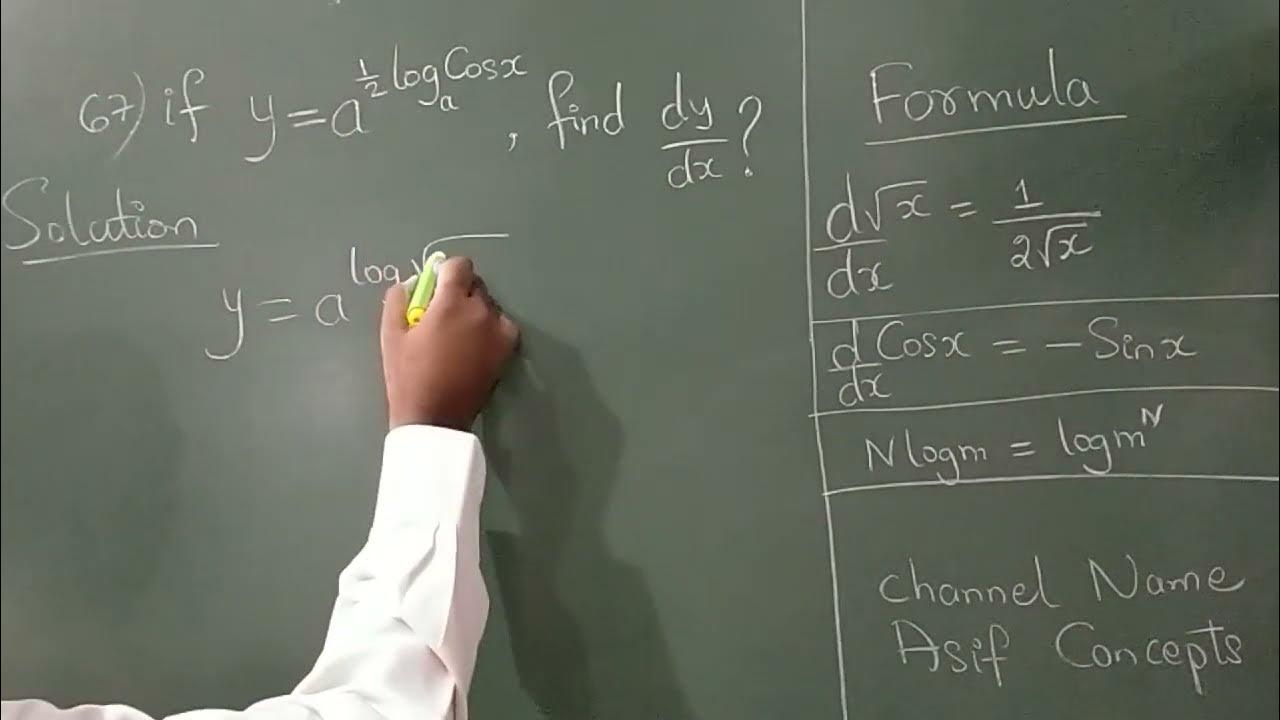 67) if y = a^{\frac{1}{2} log_a Cosx}, find \frac{dy}{dx}?
Solution
y = a^{log √
Formula
\frac{d}{dx} √x = \frac{1}{2√x}
\frac{d}{dx} Cosx = -Sinx
N log m = log m^N
channel Name
Asif Concepts